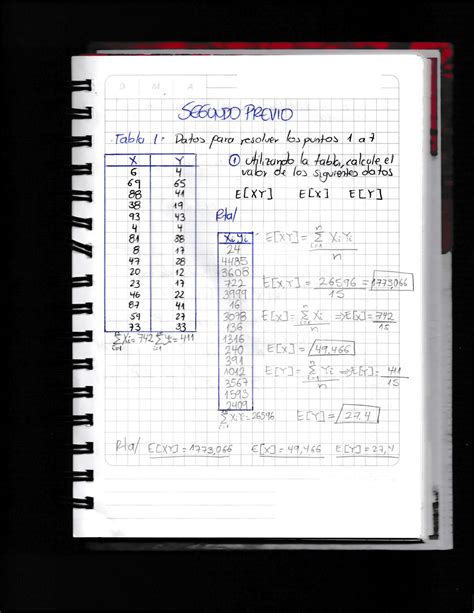 D M A
SEGUNDO PREVIO
Tabla 1: Datos para resolver los puntos 1 a 7
X Y
6 4
69 65
88 41
38 19
93 43
4 4
81 38
8 17
47 28
20 12
23 17
46 22
87 41
59 27
73 33
∑Xi=742 ∑Yi=411
① Utilizando la tabla, calcule el
valor de los siguientes datos
E[XY] E[X] E[Y]
Rta/
XiYi
24
4485
3608
722
3999
16
3078
136
1316
240
391
1012
3567
1593
2409
∑XiYi=26596
E[XY] = ∑ XiYi / n
E[XY] = 26596 / 15 = 1773,066
E[X] = ∑ Xi / n ⇒ E[X] = 742 / 15
E[X] = 49,466
E[Y] = ∑ Yi / n ⇒ E[Y] = 411 / 15
E[Y] = 27.4
Rta/ E[XY] = 1773,066 E[X] = 49,466 E[Y] = 27,4